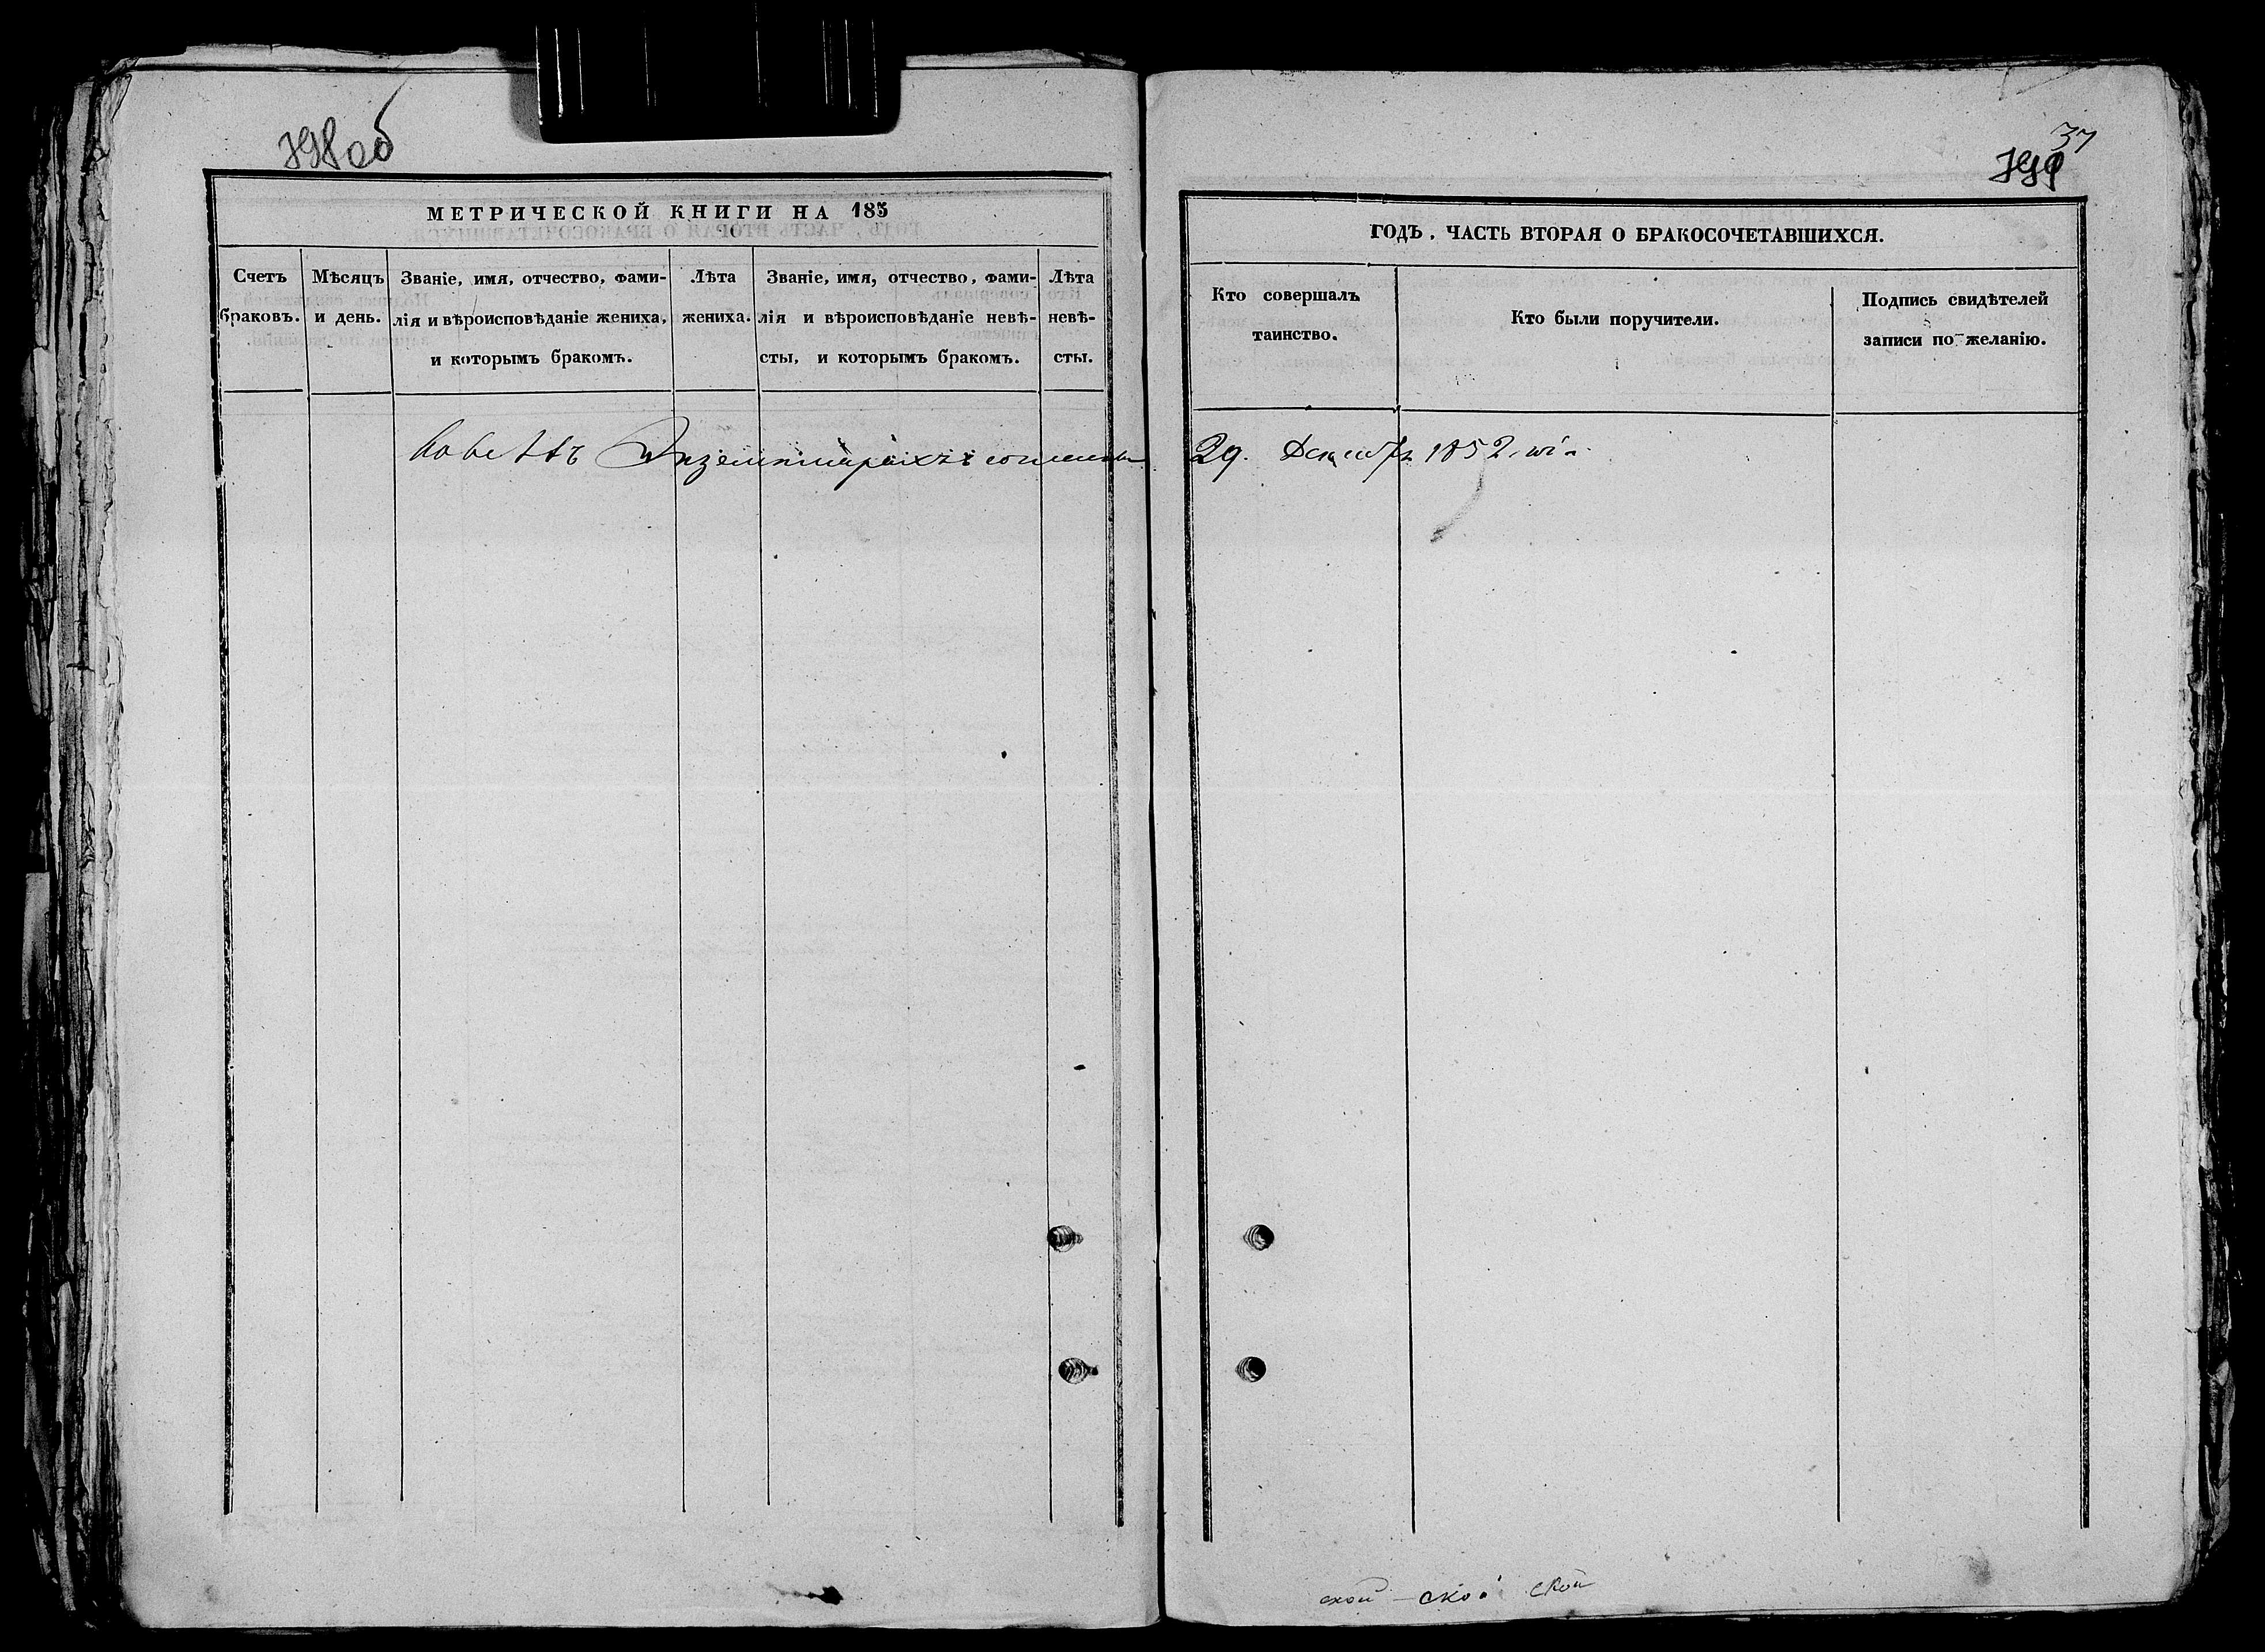 798об
МЕТРИЧЕСКОЙ КНИГИ НА 185
Счетъ браковъ.
Мѣсяцъ и день.
Званіе, имя, отчество, фами-
лія и вѣроисповѣданіе жениха,
и которымъ бракомъ.
Лѣта
жениха.
Званіе, имя, отчество, фами-
лія и вѣроисповѣданіе невѣ-
сты, и которымъ бракомъ.
Лѣта
невѣ-
сты.
37
799
ГОДЪ. ЧАСТЬ ВТОРАЯ О БРАКОСОЧЕТАВШИХСЯ.
Кто совершалъ
таинство.
Кто были поручители.
Подпись свидѣтелей
записи по желанію.
29. 1852
ской - ской ской